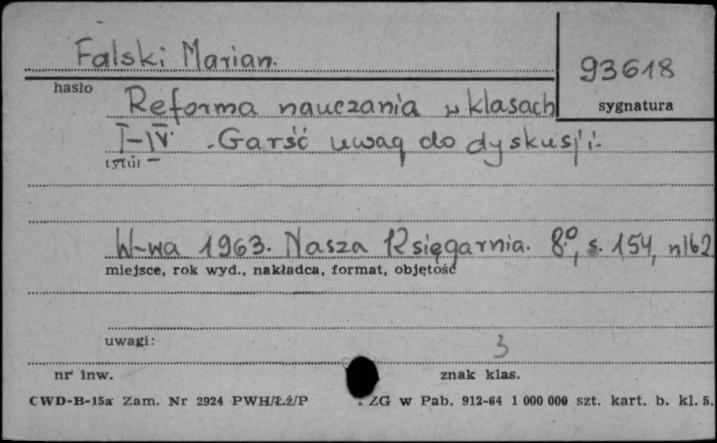 Falski Marian.
93618
hasło
sygnatura
Reforma nauczania w klasach
I-IV. Garść uwag do dyskusji.
tytuł
W-wa 1963. Nasza Księgarnia. 8º, s. 154, nlb2
miejsce, rok wyd., nakładca, format, objętość
uwagi:
3
nr inw.
znak klas.
CWD-B-15a Zam. Nr 2924 PWH/Łź/P
ZG w Pab. 912-64 1 000 000 szt. kart. b. kl. 5.